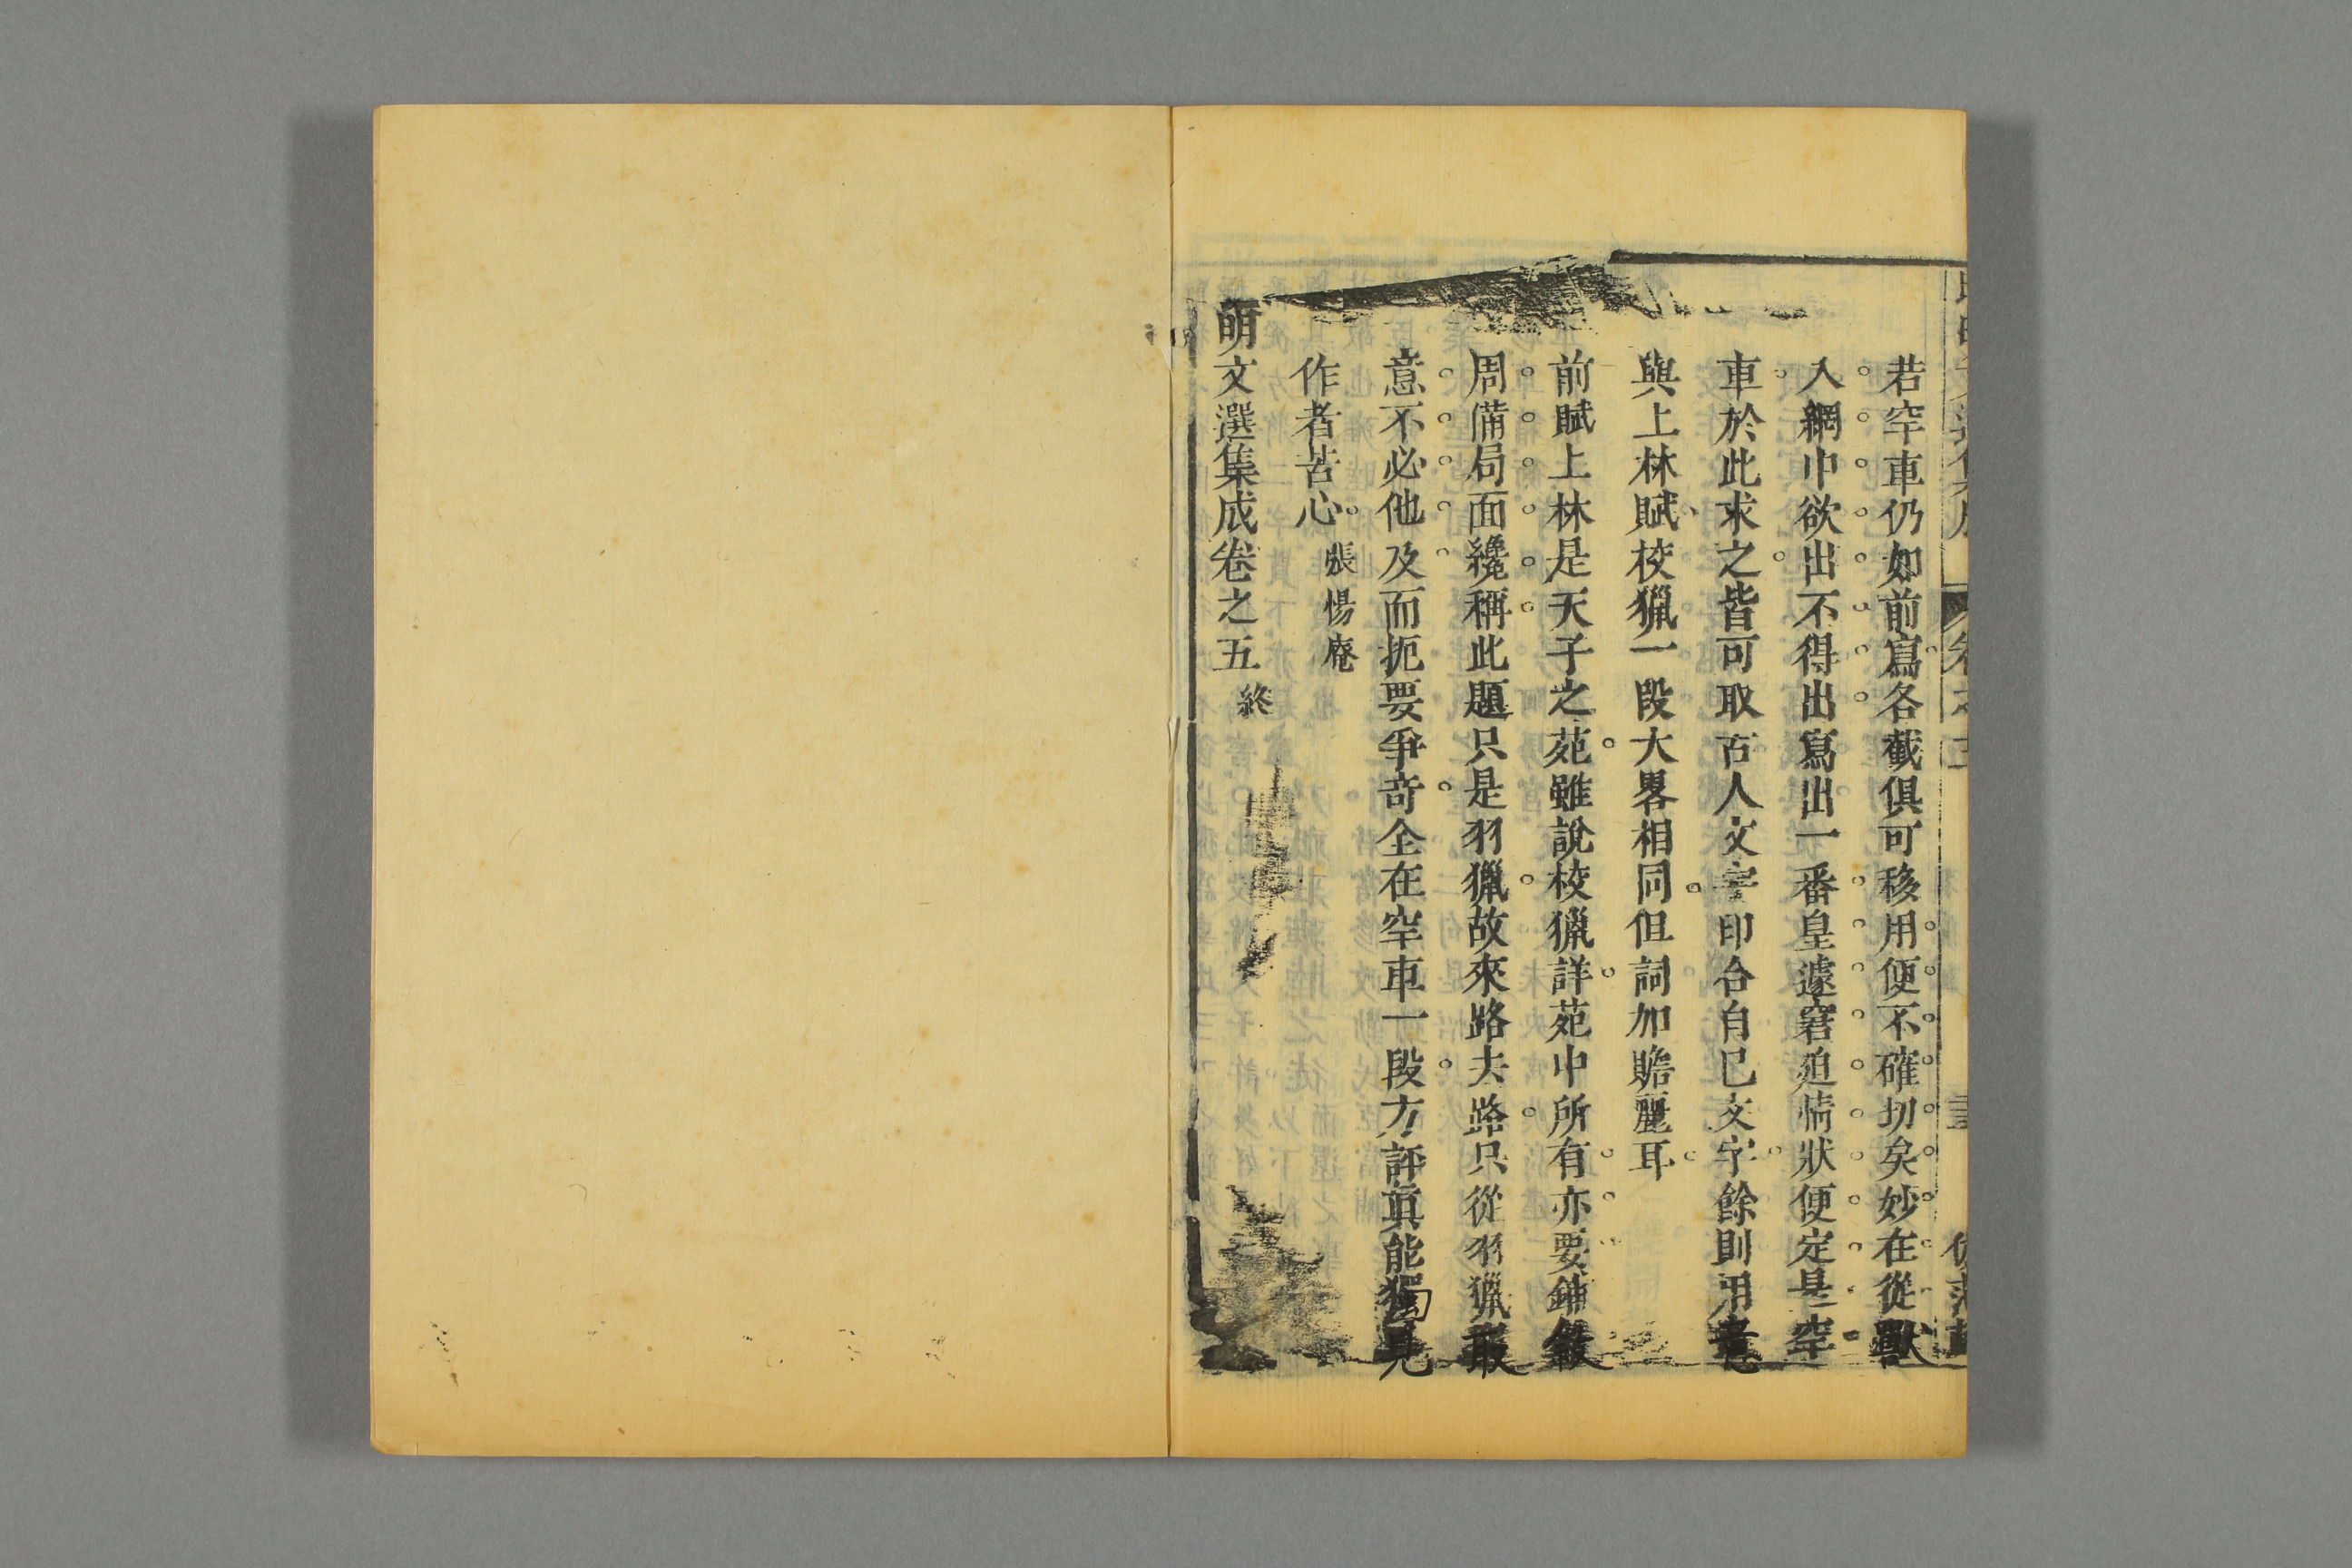 若罕車仍如前寫各截俱可移用便不確切矣妙在從獸
入網中欲出不得出寫出一番皇遽窘廹情狀便定是罕
車於此求之皆可取古人文字印合自巳文字餘則用意
與上林賦校獵一段大畧相同但詞加贍麗耳
前賦上林是天子之苑雖說校獵詳苑中所有亦要鋪敘
周備局面纔稱此題只是羽獵故來路去路只從羽獵取
意不必他及而扼要爭奇全在罕車一段方評眞能獨見
作者苦心 張惕菴
明文選集成卷之五 終